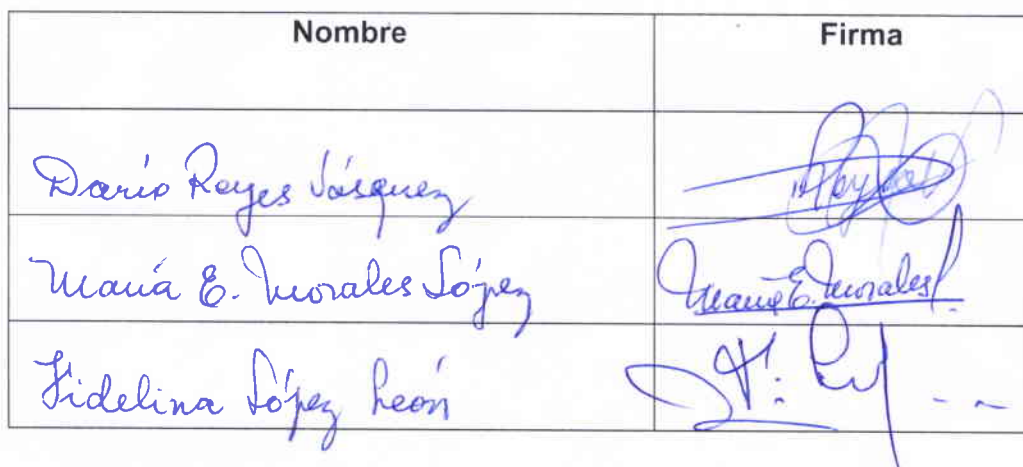 Nombre Firma
Darío Reyes Vásquez
María E. Morales López María E. Morales L.
Fidelina López León